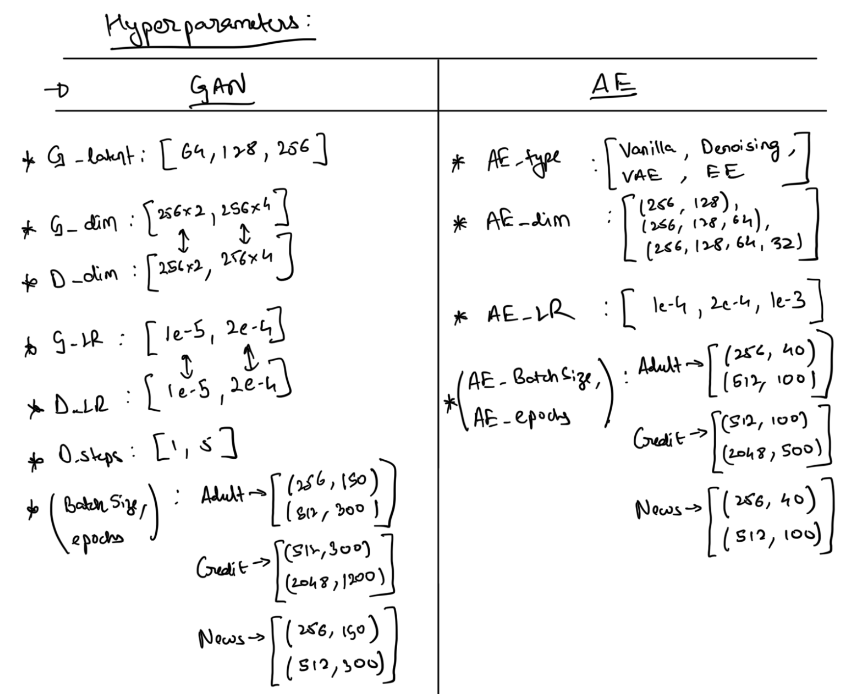 Hyperparameters:
→ GAN
* G_latent: [64, 128, 256]
* G_dim: [256x2, 256x4]
↕ ↕
* D_dim: [256x2, 256x4]
* G_LR: [1e-5, 2e-4]
↕ ↕
* D_LR: [1e-5, 2e-4]
* D_steps: [1, 5]
* (Batch Size, epochs): Adult → [(256, 150)
(512, 300)]
Credit → [(512, 300)
(2048, 1200)]
News → [(256, 150)
(512, 300)]
AE
* AE_type : [Vanilla, Denoising,
VAE, EE]
* AE_dim : [(256, 128),
(256, 128, 64),
(256, 128, 64, 32)]
* AE_LR : [1e-4, 2e-4, 1e-3]
* (AE_Batch Size, AE_epochs) : Adult → [(256, 40)
(512, 100)]
Credit → [(512, 100)
(2048, 500)]
News → [(256, 40)
(512, 100)]